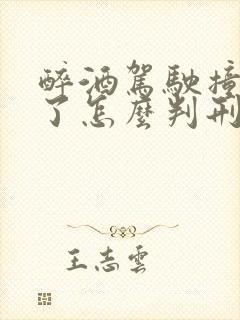 醉酒駕駛撞
了怎麼判刑
王志雲